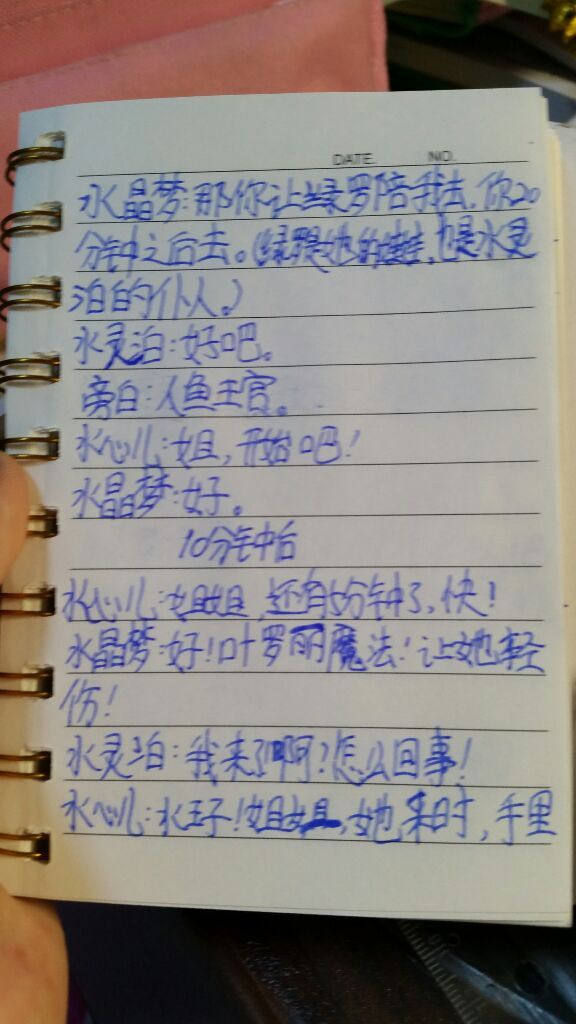 DATE. NO.
水晶梦:那你让绿罗陪我去,你20
分钟之后去。(绿罗是她的娃娃,也是水灵
泊的仆人。)
水灵泊:好吧。
旁白:人鱼王宫。
水心儿:姐,开始吧!
水晶梦:好。
10分钟后
水心儿:姐姐,还有5分钟了,快!
水晶梦:好!叶罗丽魔法!让她轻
伤!
水灵泊:我来了啊?怎么回事!
水心儿:水王子!姐姐,她来时,手里